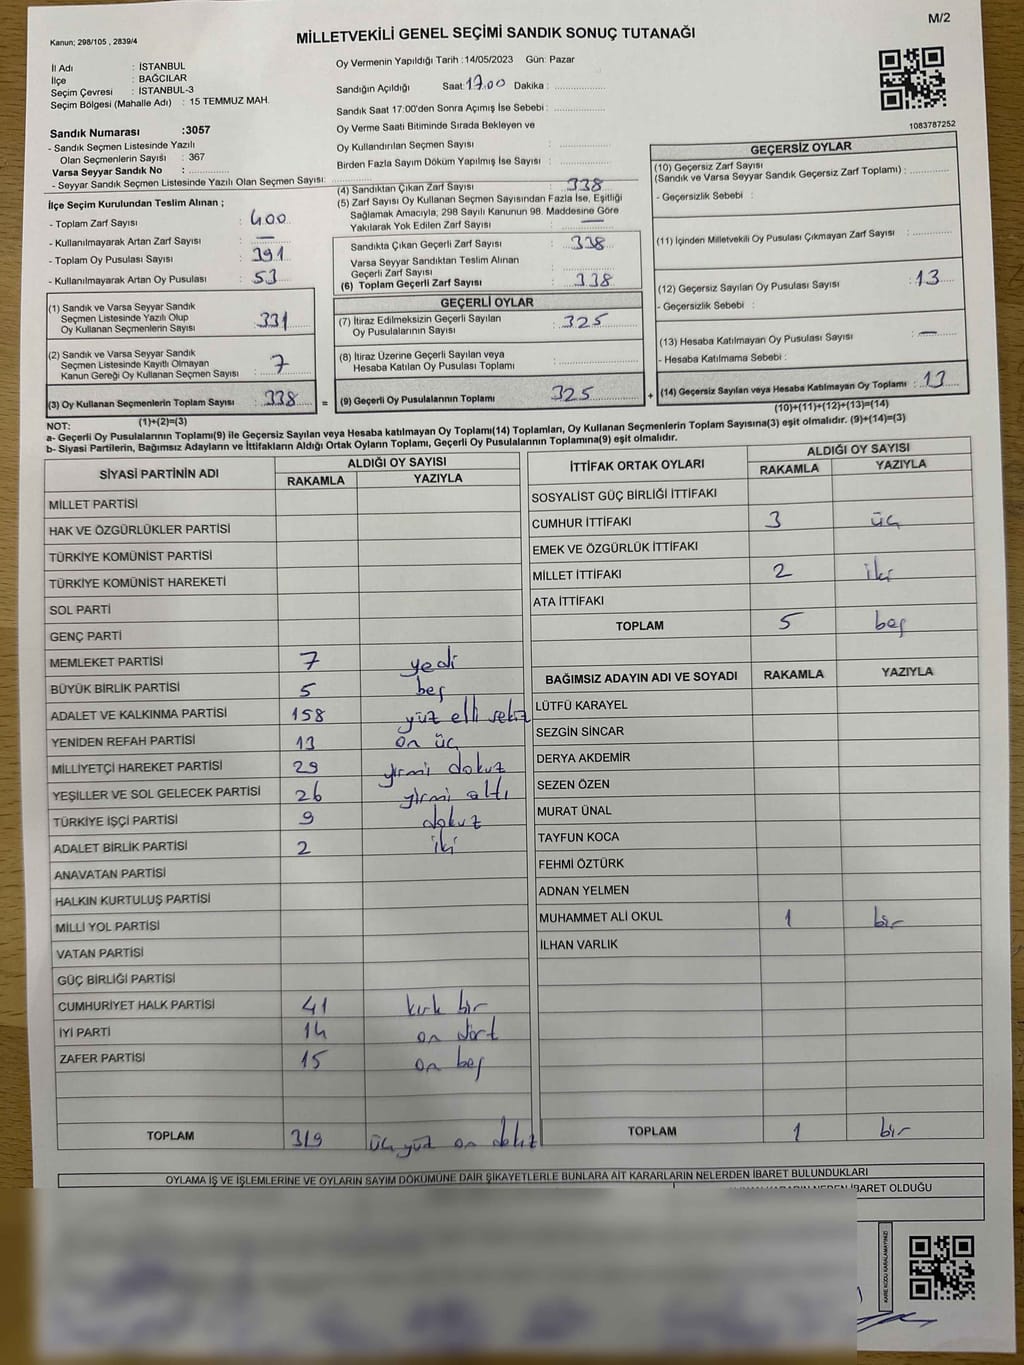 M/2
Kanun; 298/105 , 2839/4
MİLLETVEKİLİ GENEL SEÇİMİ SANDIK SONUÇ TUTANAĞI
İl Adı : İSTANBUL
İlçe : BAĞCILAR
Seçim Çevresi : İSTANBUL-3
Seçim Bölgesi (Mahalle Adı) : 15 TEMMUZ MAH.
Sandık Numarası :3057
- Sandık Seçmen Listesinde Yazılı
Olan Seçmenlerin Sayısı : 367
Varsa Seyyar Sandık No :
- Seyyar Sandık Seçmen Listesinde Yazılı Olan Seçmen Sayısı:
İlçe Seçim Kurulundan Teslim Alınan ;
- Toplam Zarf Sayısı : 400
- Kullanılmayarak Artan Zarf Sayısı : —
- Toplam Oy Pusulası Sayısı : 391
- Kullanılmayarak Artan Oy Pusulası : 53
(1) Sandık ve Varsa Seyyar Sandık
Seçmen Listesinde Yazılı Olup
Oy Kullanan Seçmenlerin Sayısı : 331
(2) Sandık ve Varsa Seyyar Sandık
Seçmen Listesinde Kayıtlı Olmayan
Kanun Gereği Oy Kullanan Seçmen Sayısı : 7
(3) Oy Kullanan Seçmenlerin Toplam Sayısı : 338 =
(1)+(2)=(3)
Oy Vermenin Yapıldığı Tarih :14/05/2023 Gün: Pazar
Sandığın Açıldığı Saat:17.00 Dakika :
Sandık Saat 17:00'den Sonra Açımış İse Sebebi :
Oy Verme Saati Bitiminde Sırada Bekleyen ve
Oy Kullandırılan Seçmen Sayısı :
Birden Fazla Sayım Döküm Yapılmış İse Sayısı :
(4) Sandıktan Çıkan Zarf Sayısı : 338
(5) Zarf Sayısı Oy Kullanan Seçmen Sayısından Fazla İse, Eşitliği
Sağlamak Amacıyla, 298 Sayılı Kanunun 98. Maddesine Göre
Yakılarak Yok Edilen Zarf Sayısı : —
Sandıkta Çıkan Geçerli Zarf Sayısı : 338
Varsa Seyyar Sandıktan Teslim Alınan
Geçerli Zarf Sayısı :
(6) Toplam Geçerli Zarf Sayısı : 338
GEÇERLİ OYLAR
(7) İtiraz Edilmeksizin Geçerli Sayılan
Oy Pusulalarının Sayısı : 325
(8) İtiraz Üzerine Geçerli Sayılan veya
Hesaba Katılan Oy Pusulası Toplamı :
(9) Geçerli Oy Pusulalarının Toplamı : 325 +
1083787252
GEÇERSİZ OYLAR
(10) Geçersiz Zarf Sayısı
(Sandık ve Varsa Seyyar Sandık Geçersiz Zarf Toplamı) :
- Geçersizlik Sebebi :
(11) İçinden Milletvekili Oy Pusulası Çıkmayan Zarf Sayısı :
(12) Geçersiz Sayılan Oy Pusulası Sayısı : 13
- Geçersizlik Sebebi :
(13) Hesaba Katılmayan Oy Pusulası Sayısı : —
- Hesaba Katılmama Sebebi :
(14) Geçersiz Sayılan veya Hesaba Katılmayan Oy Toplamı : 13
(10)+(11)+(12)+(13)=(14)
NOT:
a- Geçerli Oy Pusulalarının Toplamı(9) ile Geçersiz Sayılan veya Hesaba Katılmayan Oy Toplamı(14) Toplamları, Oy Kullanan Seçmenlerin Toplam Sayısına(3) eşit olmalıdır. (9)+(14)=(3)
b- Siyasi Partilerin, Bağımsız Adayların ve İttifakların Aldığı Ortak Oyların Toplamı, Geçerli Oy Pusulalarının Toplamına(9) eşit olmalıdır.
SİYASİ PARTİNİN ADI ALDIĞI OY SAYISI
RAKAMLA YAZIYLA
MİLLET PARTİSİ
HAK VE ÖZGÜRLÜKLER PARTİSİ
TÜRKİYE KOMÜNİST PARTİSİ
TÜRKİYE KOMÜNİST HAREKETİ
SOL PARTİ
GENÇ PARTİ
MEMLEKET PARTİSİ 7 yedi
BÜYÜK BİRLİK PARTİSİ 5 beş
ADALET VE KALKINMA PARTİSİ 158 yüz elli sekiz
YENİDEN REFAH PARTİSİ 13 on üç
MİLLİYETÇİ HAREKET PARTİSİ 29 yirmi dokuz
YEŞİLLER VE SOL GELECEK PARTİSİ 26 yirmi altı
TÜRKİYE İŞÇİ PARTİSİ 9 dokuz
ADALET BİRLİK PARTİSİ 2 iki
ANAVATAN PARTİSİ
HALKIN KURTULUŞ PARTİSİ
MİLLİ YOL PARTİSİ
VATAN PARTİSİ
GÜÇ BİRLİĞİ PARTİSİ
CUMHURİYET HALK PARTİSİ 41 kırk bir
İYİ PARTİ 14 on dört
ZAFER PARTİSİ 15 on beş
TOPLAM 319 üç yüz on dokuz
İTTİFAK ORTAK OYLARI ALDIĞI OY SAYISI
RAKAMLA YAZIYLA
SOSYALİST GÜÇ BİRLİĞİ İTTİFAKI
CUMHUR İTTİFAKI 3 üç
EMEK VE ÖZGÜRLÜK İTTİFAKI
MİLLET İTTİFAKI 2 iki
ATA İTTİFAKI
TOPLAM 5 beş
BAĞIMSIZ ADAYIN ADI VE SOYADI RAKAMLA YAZIYLA
LÜTFÜ KARAYEL
SEZGİN SİNCAR
DERYA AKDEMİR
SEZEN ÖZEN
MURAT ÜNAL
TAYFUN KOCA
FEHMİ ÖZTÜRK
ADNAN YELMEN
MUHAMMET ALİ OKUL 1 bir
İLHAN VARLIK
TOPLAM 1 bir
OYLAMA İŞ VE İŞLEMLERİNE VE OYLARIN SAYIM DÖKÜMÜNE DAİR ŞİKAYETLERLE BUNLARA AİT KARARLARIN NELERDEN İBARET BULUNDUKLARI
İBARET OLDUĞU
KARE KODU KARALAMAYINIZ!